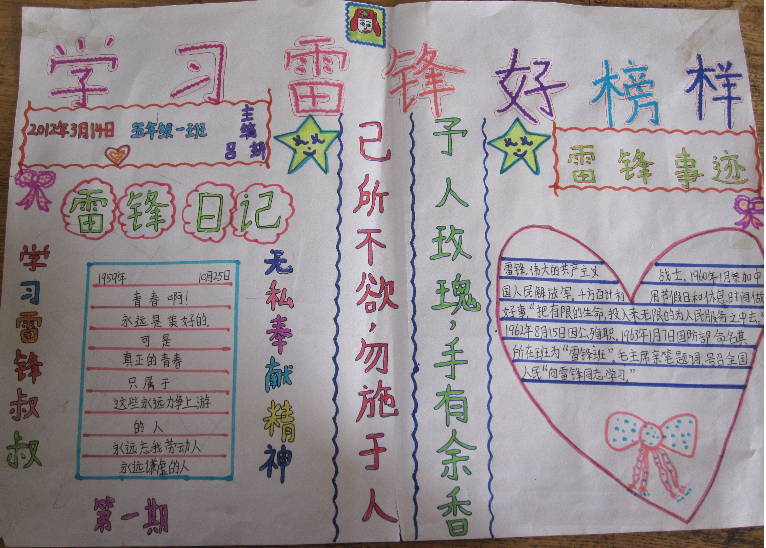 学习雷锋好榜样
2012年3月14日 五年级一班
主编
吕妍
雷锋日记
学习雷锋叔叔
1959年 10月25日
青春啊!
永远是美好的,
可是
真正的青春
只属于
这些永远力争上游
的人
永远忘我劳动人
永远谦虚的人
无私奉献精神
第一期
己所不欲,勿施于人
予人玫瑰,手有余香
雷锋事迹
雷锋,伟大的共产主义 战士,1960年1月参加中
国人民解放军,
用节假日和休息时间做
好事。"把有限的生命,投入末无限的为人民服务之中去。"
1962年8月15日因公殉职,1963年1月7日国防部命名其
所在班为"雷锋班",毛主席亲笔题词,号召全国
人民"向雷锋同志学习。"